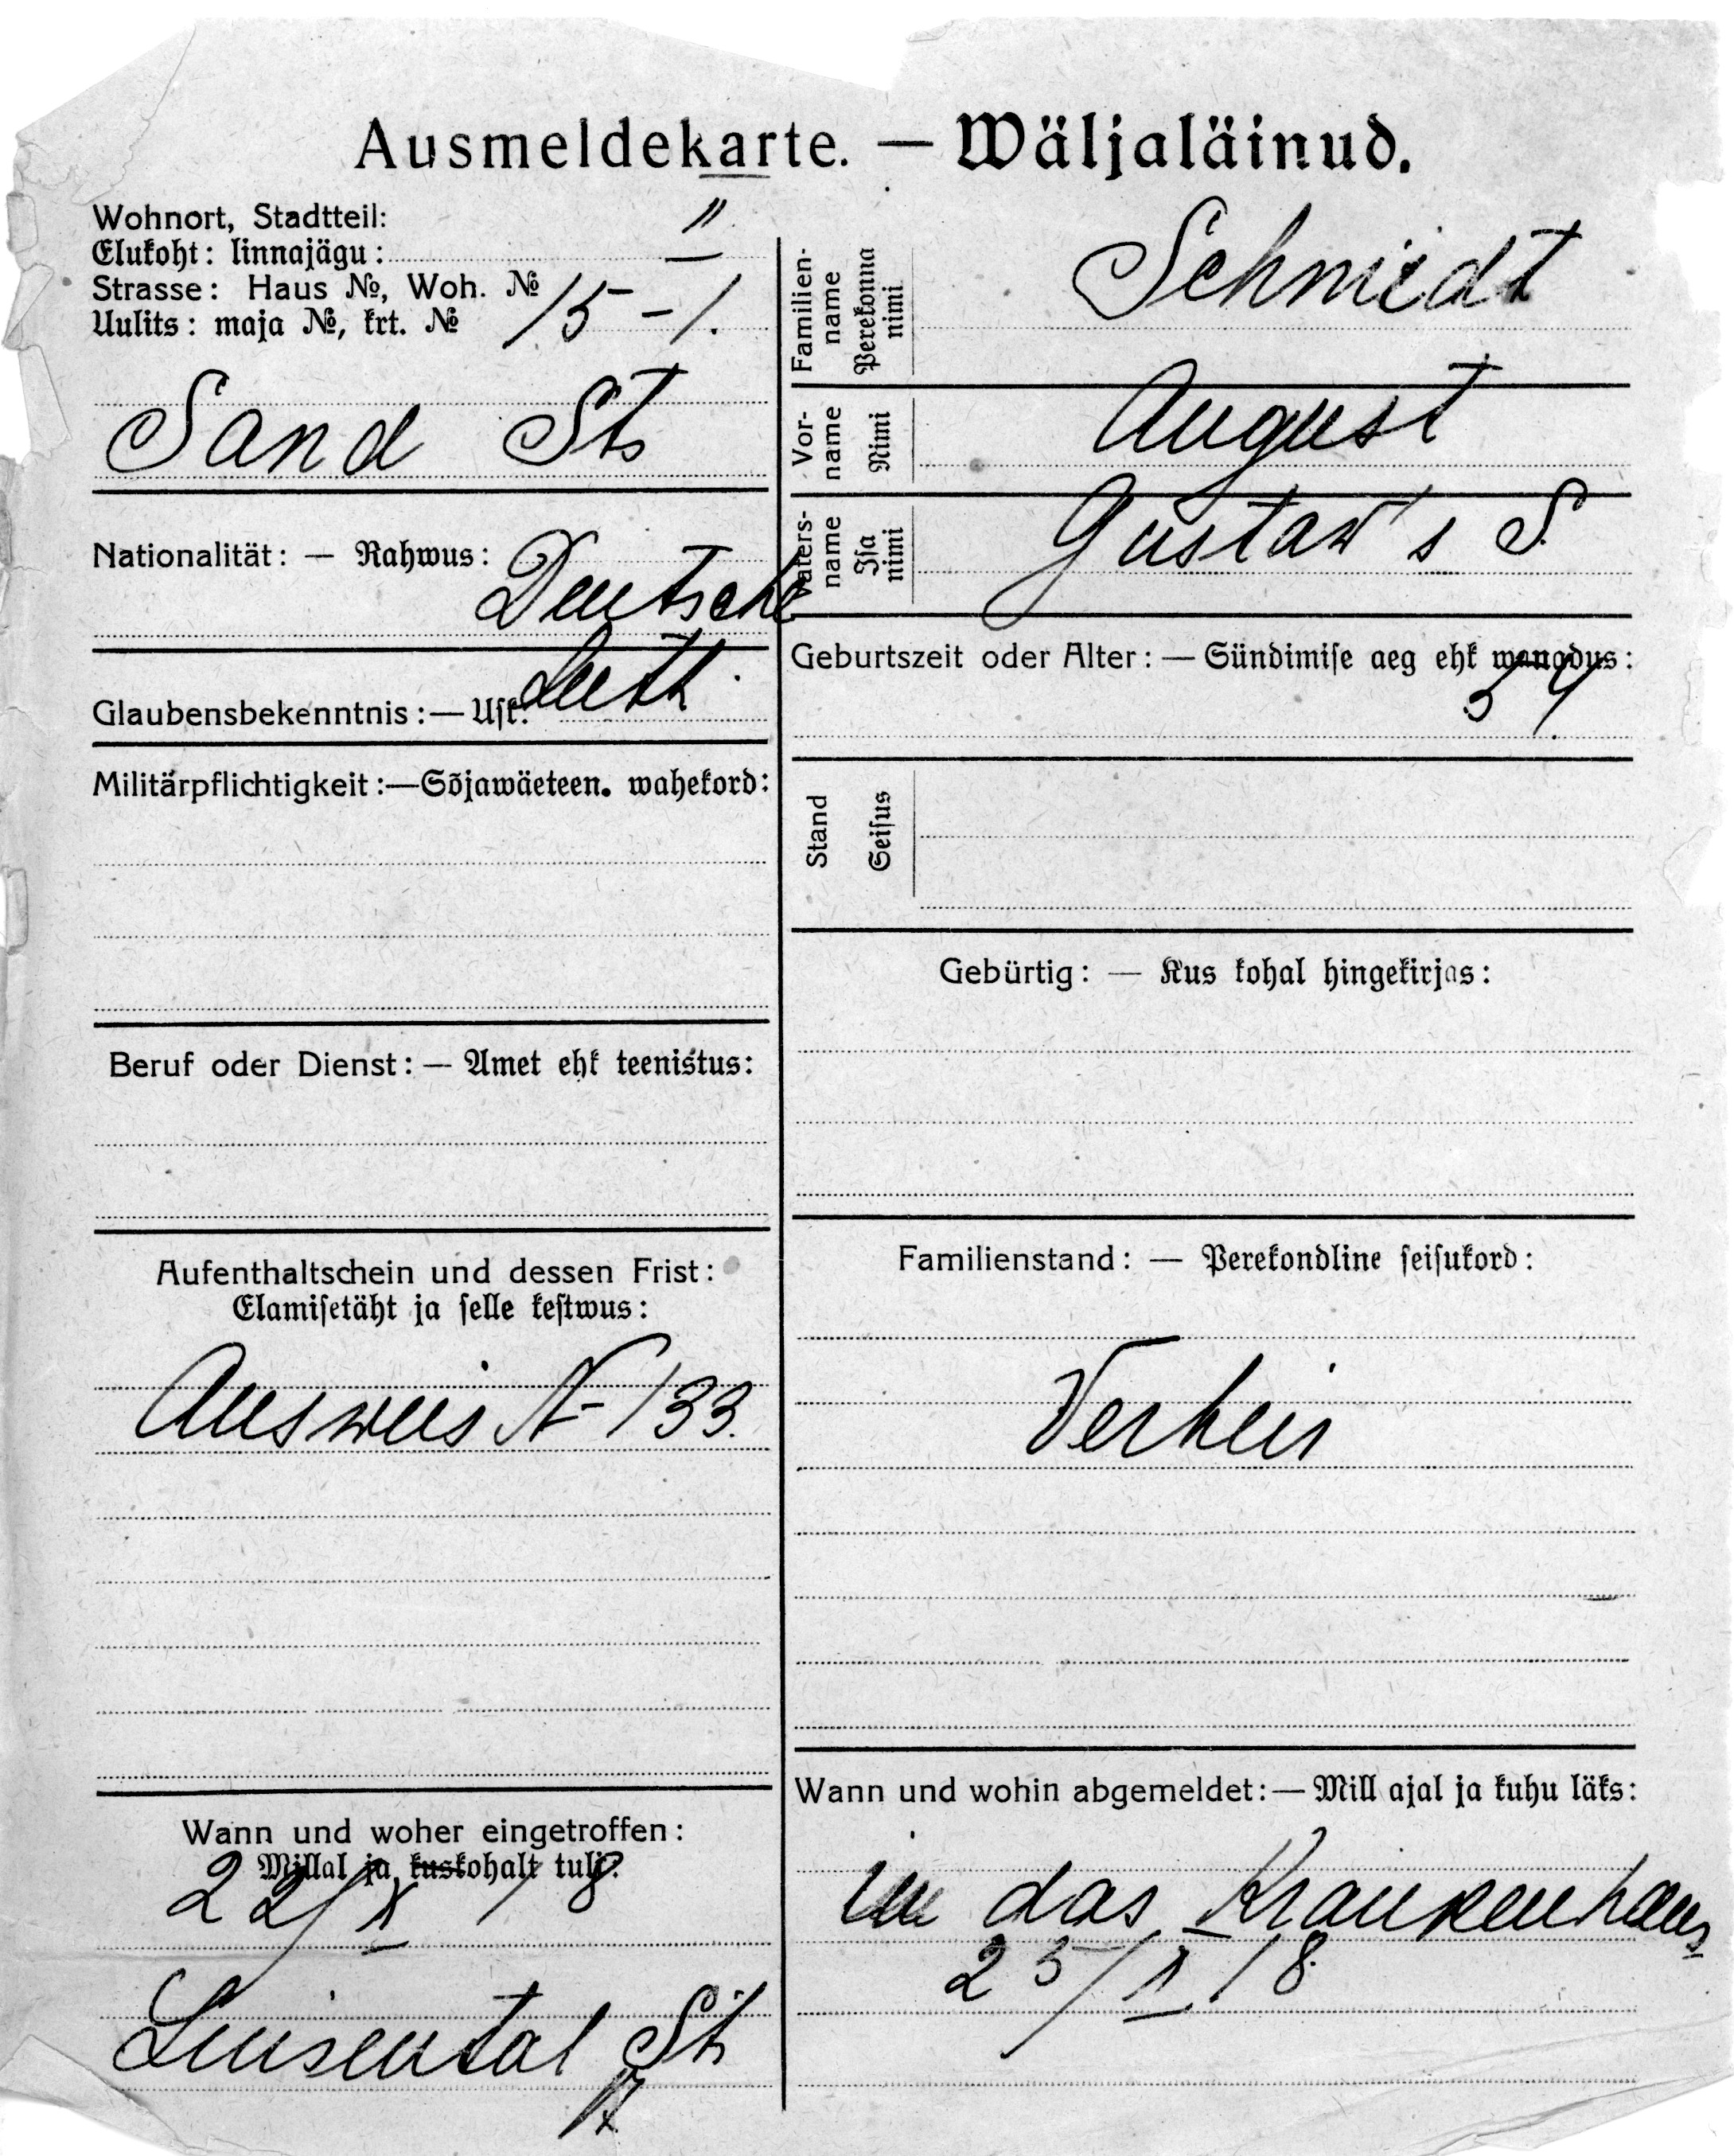 Ausmeldekarte. — Wäljaläinud.
Wohnort, Stadtteil:
Elukoht: linnajägu: II
Strasse: Haus №, Woh. №
Uulits: maja №, krt. № 15-1.
Sand Str
Nationalität: — Rahwus:
Deutsche
Glaubensbekenntnis: — Usk: Luth.
Militärpflichtigkeit: — Sõjawäeteen. wahekord:
Beruf oder Dienst: — Amet ehk teenistus:
Aufenthaltschein und dessen Frist:
Elamisetäht ja selle kestwus:
Ausweis N-133.
Wann und woher eingetroffen:
Millal ja kuskohalt tuli:
22/X 18
Luisental Str
17
Familien-
name
Perekonna
nimi
Schmidt
Vor-
name
Nimi
August
Vaters-
name
Isa
nimi
Gustaw's S.
Geburtszeit oder Alter: — Sündimise aeg ehk wanadus:
54.
Stand
Seisus
Gebürtig: — Kus kohal hingekirjas:
Familienstand: — Perekondline seisukord:
Verheir
Wann und wohin abgemeldet: — Mill ajal ja kuhu läks:
in das Krankenhaus
25/X 18.